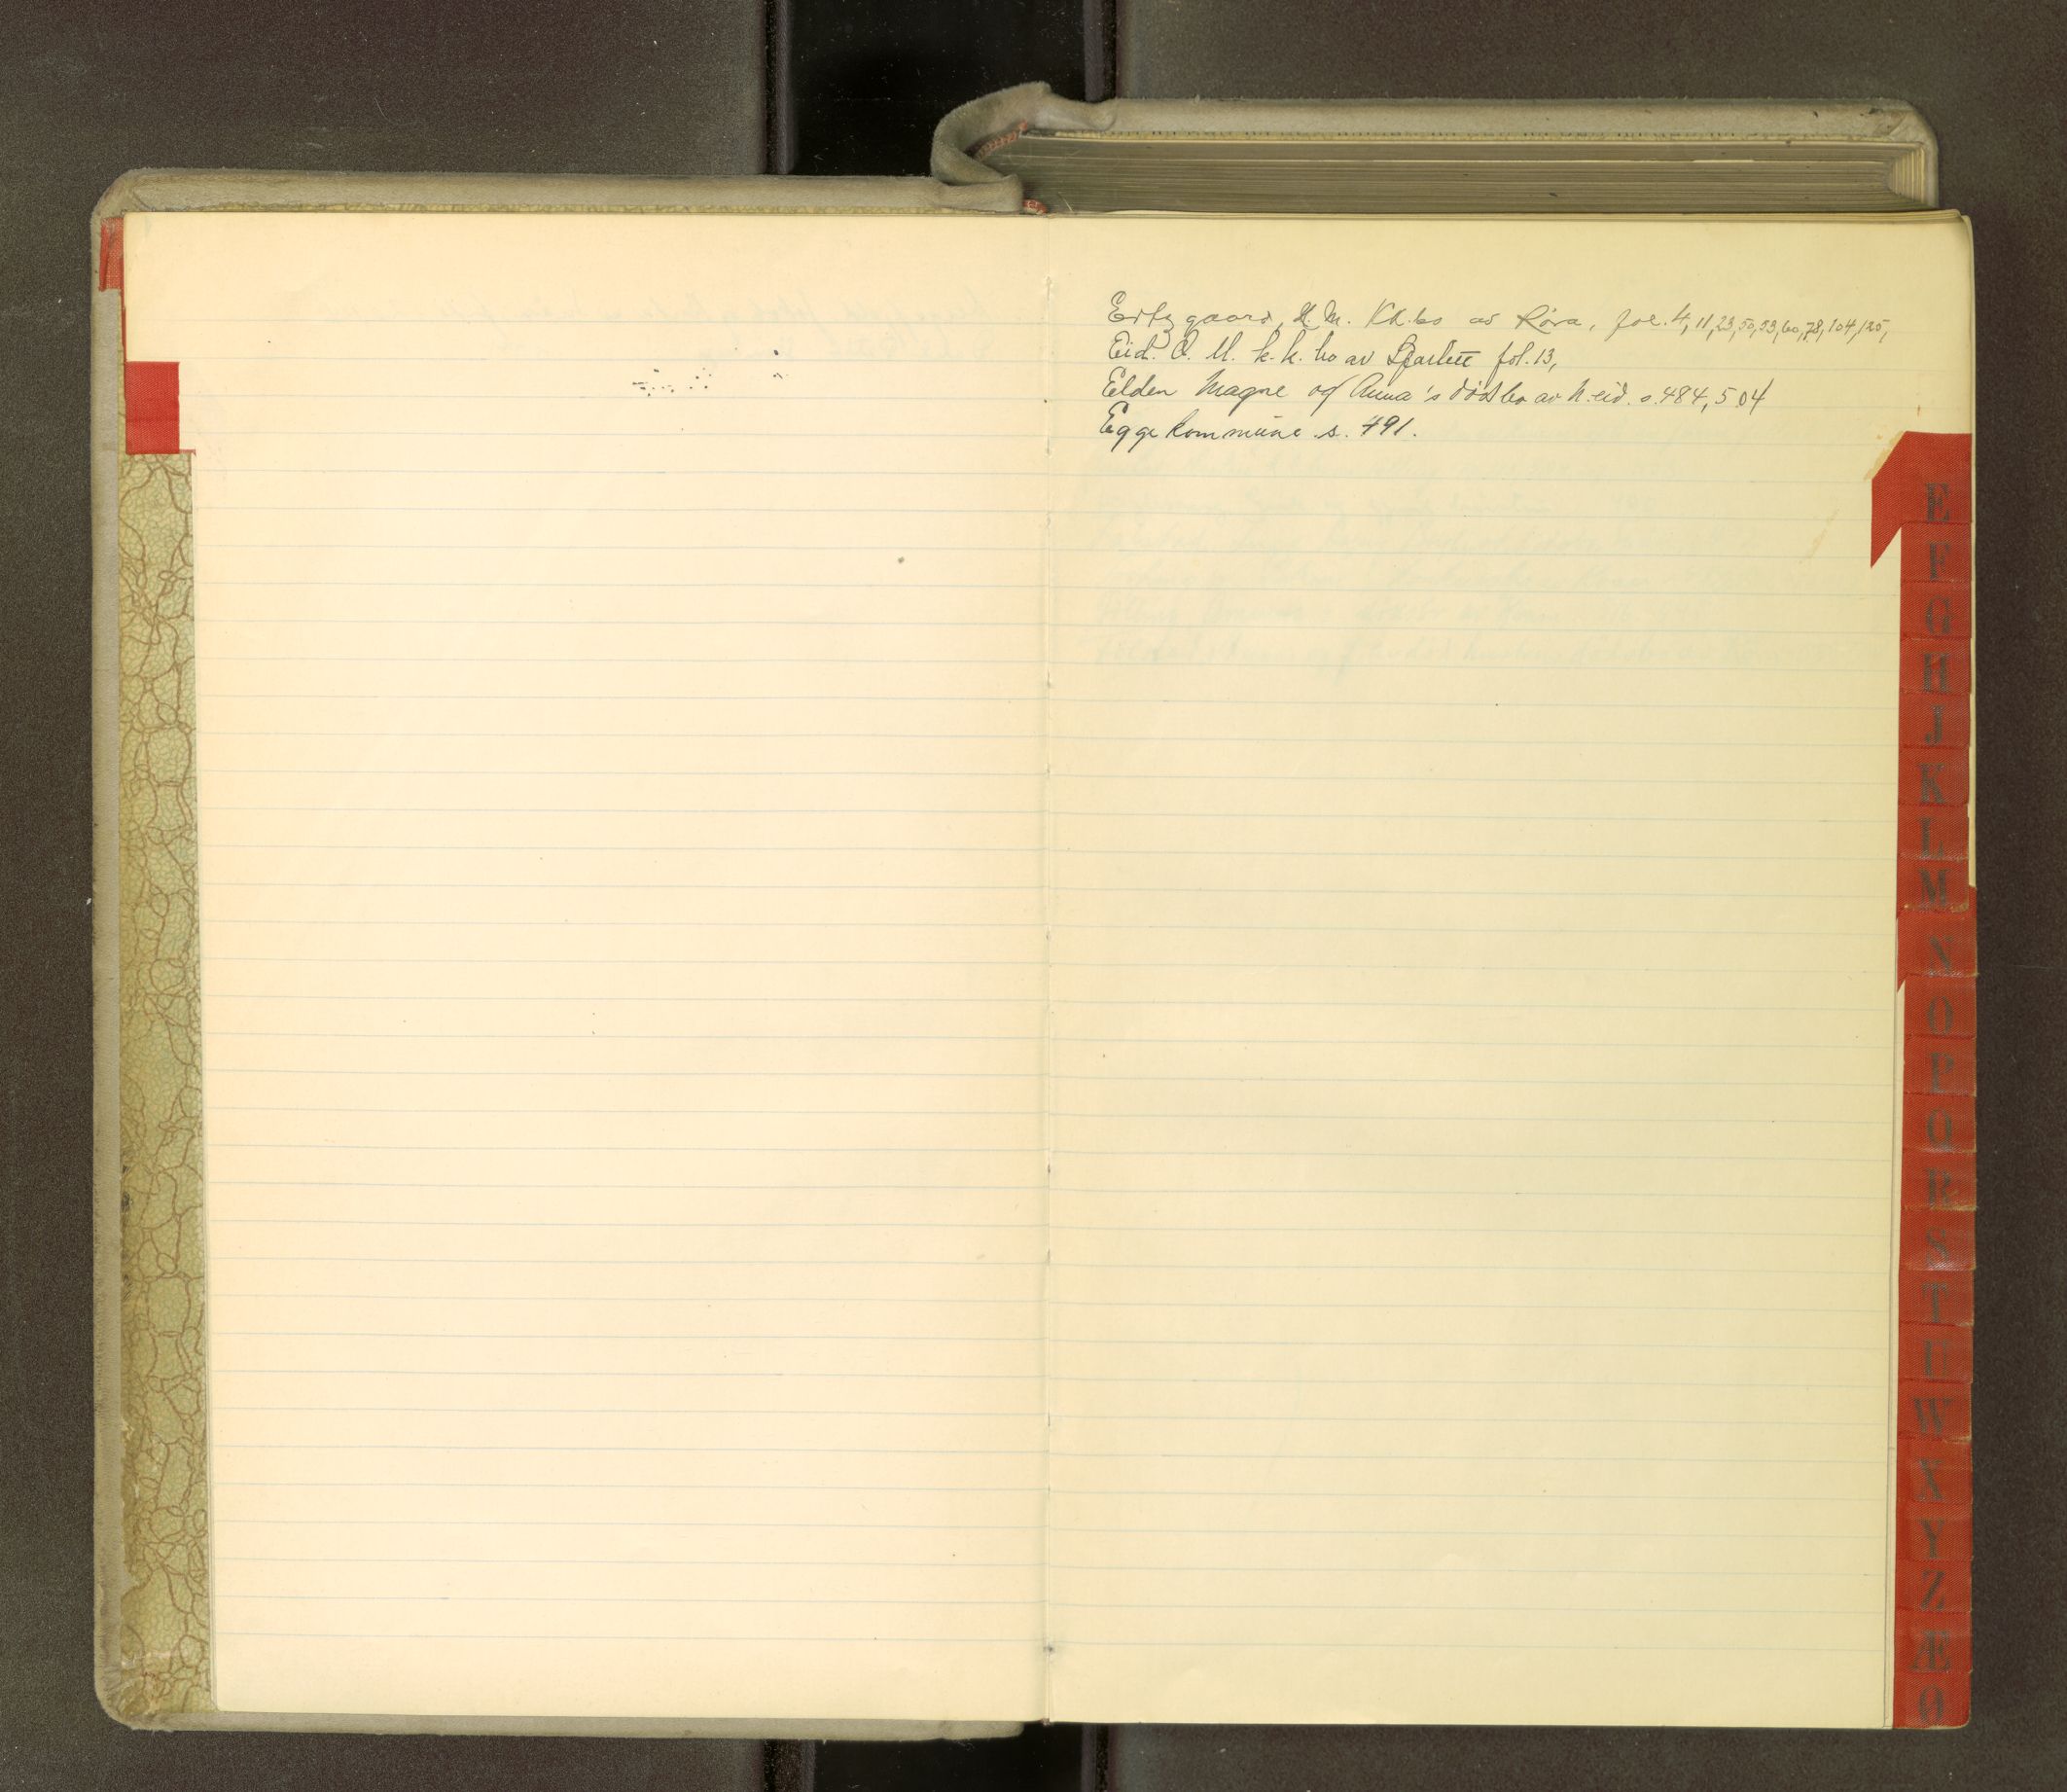 Eitzgaard, H. M. Kk.bo av Røra, fol. 4, 11, 23, 50, 53, 60, 78, 104, 125,
Eid. O. M. k.k. bo av Sparbu fol. 13,
Elden Magne og Anna's dødsbo av N.eid. s. 484, 504
Egge kommune s. 491.
E
F
G
H
J
K
L
M
N
O
P
Q
R
S
T
U
W
X
Y
Z
Æ
Ø